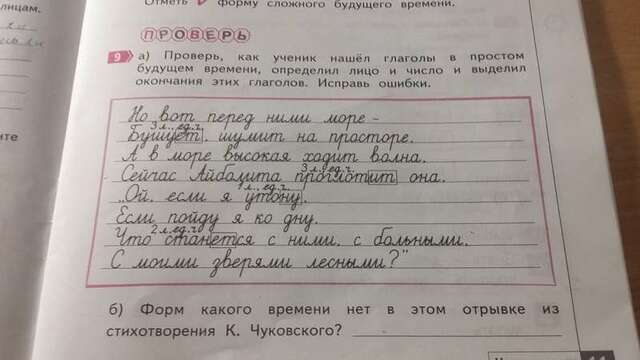 лицам.
Отметь ✓ форму сложного будущего времени.
ПРОВЕРЬ
9 а) Проверь, как ученик нашёл глаголы в простом
будущем времени, определил лицо и число и выделил
окончания этих глаголов. Исправь ошибки.
Но вот перед ними море –
3 л., ед.ч.
Бушует, шумит на просторе.
А в море высокая ходит волна.
3 л., ед.ч.
Сейчас Айболита проглотит она.
1 л., ед.ч.
„Ой, если я утону,
Если пойду я ко дну,
2 л. ед.ч.
Что станется с ними, с больными,
С моими зверями лесными?"
б) Форм какого времени нет в этом отрывке из
стихотворения К. Чуковского?